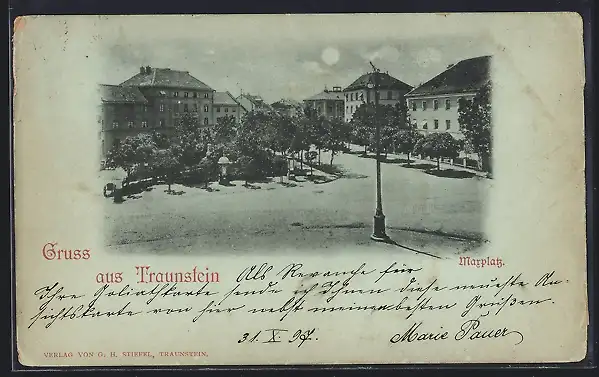 Gruss
aus Traunstein
Maxplatz.
Als Revanche für
Ihre Goliathkarte sende ich Ihnen diese neueste An-
sichtskarte von hier nebst meinen besten Grüßen.
31. X 97.
Marie Pauer
VERLAG VON G. H. STIEFEL, TRAUNSTEIN.